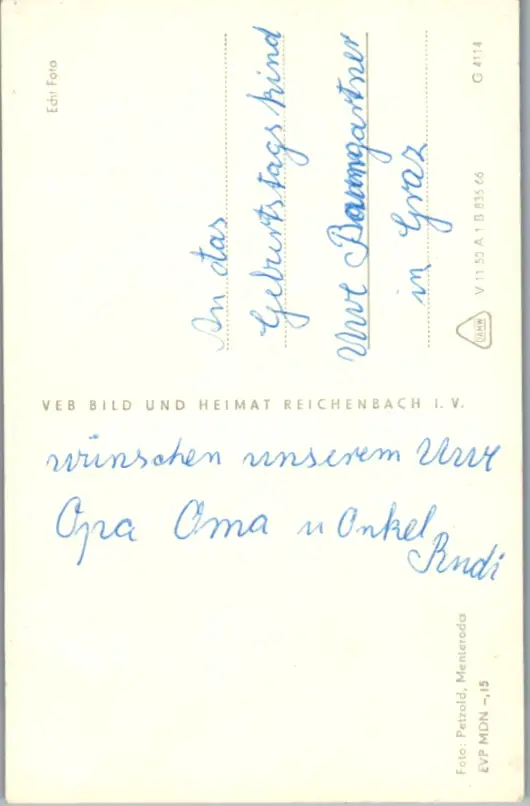 Echt Foto
An das
Geburtstagskind
Uwe Baumgartner
in Graz
V 11 50 A 1 B 835/66
G 4114
DAMW
VEB BILD UND HEIMAT REICHENBACH I. V.
wünschen unserem Uwe
Opa Oma u Onkel
Rudi
Foto: Petzold, Menteroda
EVP MDN -,15